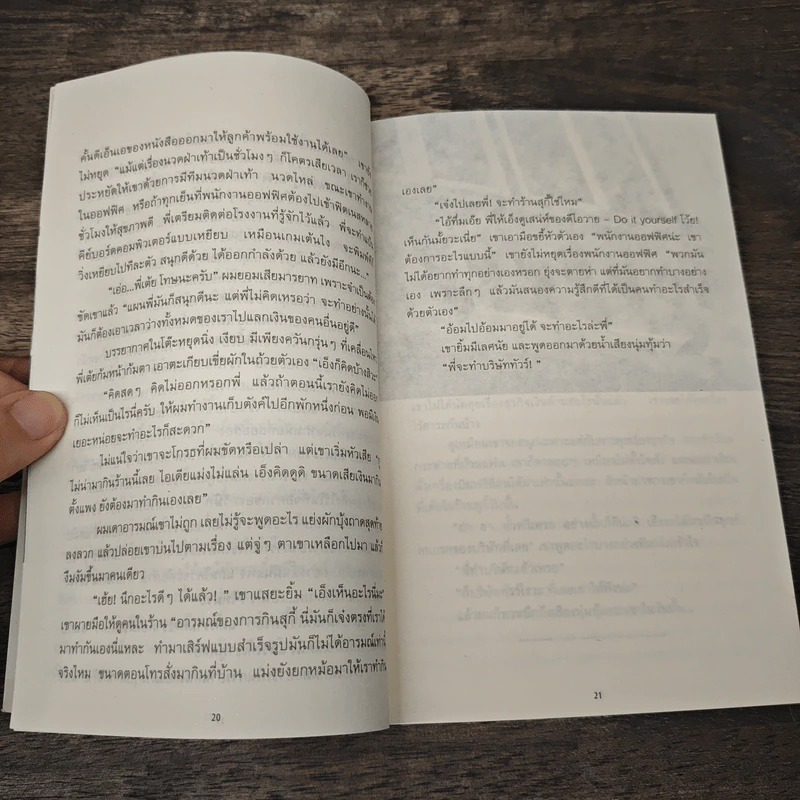 คั้นดีเอ็นเอของหนังสือออกมาให้ลูกค้าพร้อมใช้งานได้เลย”
ไม่หยุด “แม้แต่เรื่องนวดฝ่าเท้าเป็นชั่วโมงๆ ก็โคตรเสียเวลา เราก็
ประหยัดให้เขาด้วยการมีทีมนวดฝ่าเท้า นวดไหล่ ขณะเขาทำงาน
ในออฟฟิศ หรือถ้าทุกเย็นที่พนักงานออฟฟิศต้องไปเข้าฟิตเนส
ชั่วโมงให้สุขภาพดี พี่เตรียมติดต่อโรงงานที่รู้จักไว้แล้ว พี่จะทำ
คีย์บอร์ดคอมพิวเตอร์แบบเหยียบ เหมือนเกมเต้นไง จะพิมพ์ที
วิ่งเหยียบไปทีละตัว สนุกดีด้วย ได้ออกกำลังด้วย แล้วยังมีอีกนะ...”
“เอ่อ...พี่เต้ย โทษนะครับ” ผมยอมเสียมารยาท เพราะจำเป็นต้อง
ขัดเขาแล้ว “แผนพี่มันก็สนุกดีนะ แต่พี่ไม่คิดเหรอว่า จะทำอย่างนั้นได้
มันก็ต้องเอาเวลาว่างทั้งหมดของเราไปแลกเงินของคนอื่นอยู่ดี”
บรรยากาศในโต๊ะหยุดนิ่ง เงียบ มีเพียงควันกรุ่นๆ ที่เคลื่อนไหว
พี่เต้ยก้มหน้าก้มตา เอาตะเกียบเขี่ยผักในถ้วยตัวเอง “เอ็งก็คิดบ้างสิวะ”
“คิดสดๆ คิดไม่ออกหรอกพี่ แล้วถ้าตอนนี้เรายังคิดไม่ออก
ก็ไม่เห็นเป็นไรนี่ครับ ให้ผมทำงานเก็บตังค์ไปอีกพักหนึ่งก่อน พอมีเงิน
เยอะหน่อยจะทำอะไรก็สะดวก”
ไม่แน่ใจว่าเขาจะโกรธที่ผมขัดหรือเปล่า แต่เขาเริ่มหัวเสีย
ไม่น่ามากินร้านนี้เลย ไอเดียแม่งไม่แล่น เอ็งคิดดูดิ ขนาดเสียเงินมากิน
ตั้งแพง ยังต้องมาทำกินเองเลย”
ผมเดาอารมณ์เขาไม่ถูก เลยไม่รู้จะพูดอะไร แย่งผักบุ้งถาดสุดท้าย
ลงลวก แล้วปล่อยเขาบ่นไปตามเรื่อง แต่จู่ๆ ตาเขาเหลือกไปมา แล้วก็
งึมงัมขึ้นมาคนเดียว
“เฮ้ย! นึกอะไรดีๆ ได้แล้ว! ” เขาแสยะยิ้ม “เอ็งเห็นอะไรนี่มะ”
เขาผายมือให้ดูคนในร้าน “อารมณ์ของการกินสุกี้ นี่มันก็เจ๋งตรงที่เราได้
มาทำกินเองนี่แหละ ทำมาเสิร์ฟแบบสำเร็จรูปมันก็ไม่ได้อารมณ์เท่านี้
จริงไหม ขนาดตอนโทรสั่งมากินที่บ้าน แม่งยังยกหม้อมาให้เราทำกิน
20
เองเลย”
“เจ๋งไปเลยพี่! จะทำร้านสุกี้ใช่ไหม”
“ไอ้ทึ่มเอ๊ย พี่ให้เอ็งดูเสน่ห์ของดีไอวาย – Do it yourself โว้ย!
เห็นกันมั้ยวะเนี่ย” เขาเอามือขยี้หัวตัวเอง “พนักงานออฟฟิศน่ะ เขา
ต้องการอะไรแบบนี้” เขายังไม่หยุดเรื่องพนักงานออฟฟิศ “พวกมัน
ไม่ได้อยากทำทุกอย่างเองหรอก ยุ่งจะตายห่า แต่ที่มันอยากทำบางอย่าง
เอง เพราะลึกๆ แล้วมันสนองความรู้สึกดีที่ได้เป็นคนทำอะไรสำเร็จ
ด้วยตัวเอง”
“อ้อมไปอ้อมมาอยู่ได้ จะทำอะไรล่ะพี่”
เขายิ้มมีเลศนัย และพูดออกมาด้วยน้ำเสียงนุ่มทุ้มว่า
“พี่จะทำบริษัททัวร์! ”
21